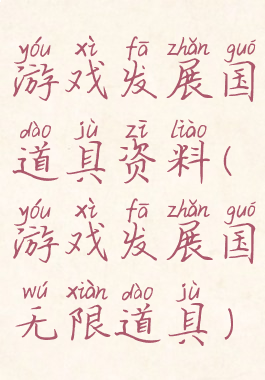 yóu xì fā zhǎn guó
游戏发展国
dào jù zī liào
道具资料(
yóu xì fā zhǎn guó
游戏发展国
wú xiàn dào jù
无限道具)